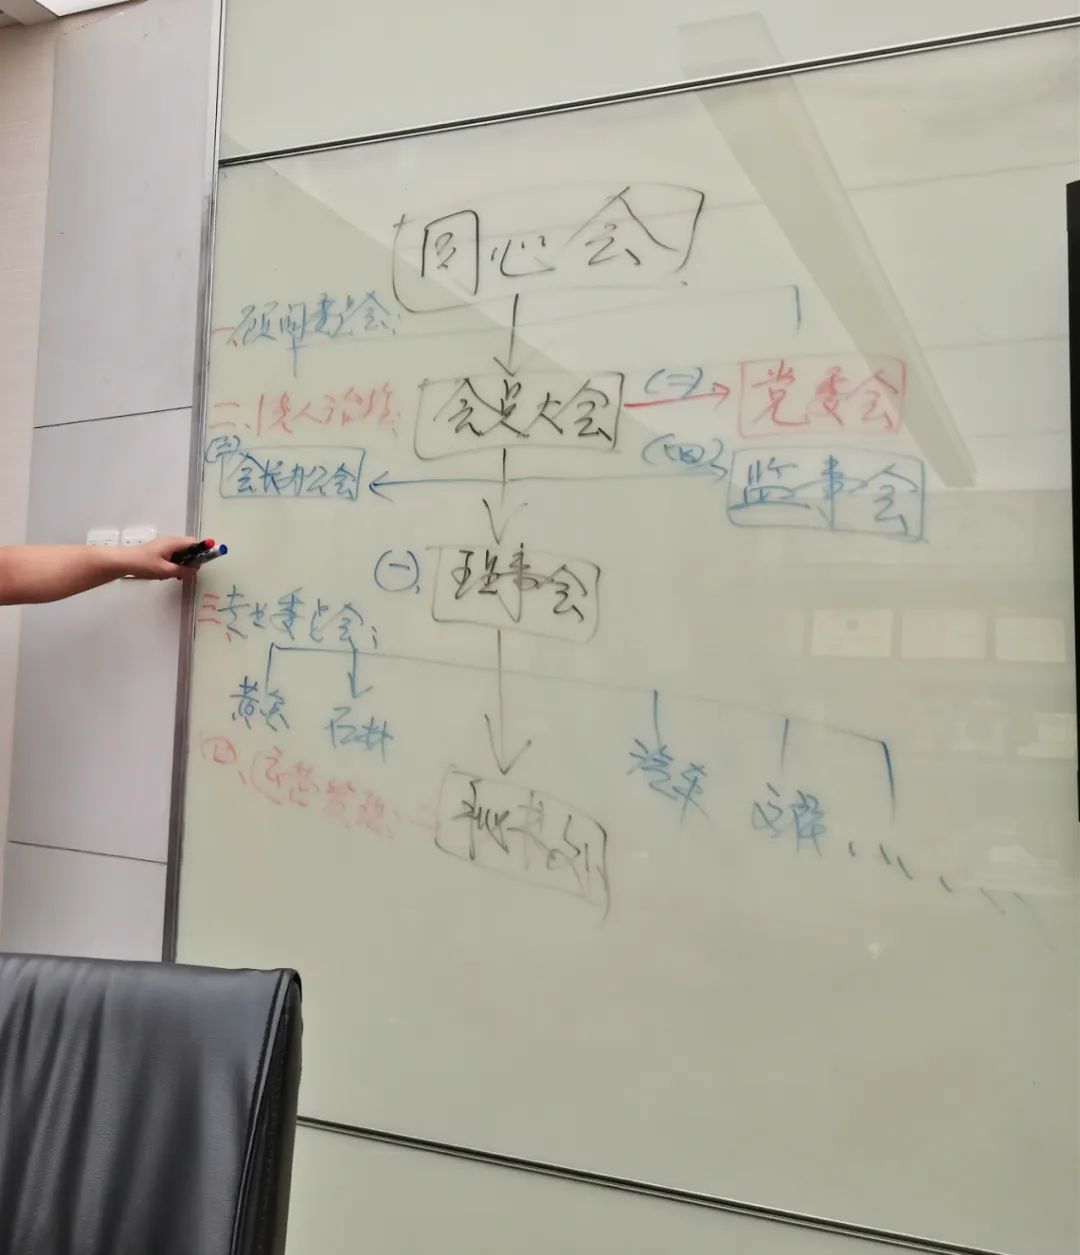 同心会
一、顾问委员会：
二、法人治理：
会员大会
(二)
党委会
(三)
会长办公会
(四)
监事会
(一)、
理事会
三、专业委员会；
黄金
石材
汽车
四、运营发展：
秘书处